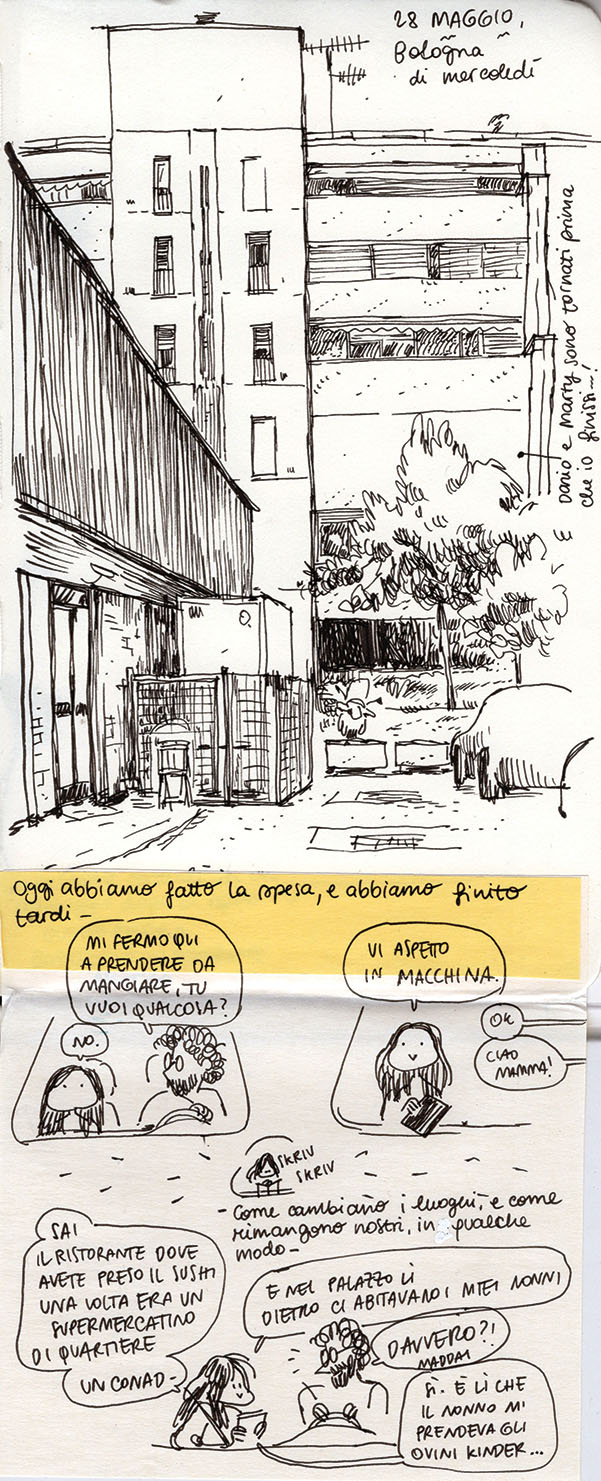 28 MAGGIO,
Bologna
di mercoledì
Dario e Marty sono tornati prima
che io finissi—!
Oggi abbiamo fatto la spesa, e abbiamo finito
tardi —
MI FERMO QUI
A PRENDERE DA
MANGIARE, TU
VUOI QUALCOSA?
NO.
VI ASPETTO
IN MACCHINA.
OK
CIAO
MAMMA!
SKRIV
SKRIV
- Come cambiano i luoghi, e come
rimangono nostri, in qualche
modo -
SAI
IL RISTORANTE DOVE
AVETE PRESO IL SUSHI
UNA VOLTA ERA UN
SUPERMERCATINO
DI QUARTIERE
UN CONAD -
E NEL PALAZZO LÌ
DIETRO CI ABITAVANO I MIEI NONNI
DAVVERO?!
MADDAI
SÌ. È LÌ CHE
IL NONNO MI
PRENDEVA GLI
OVINI KINDER...